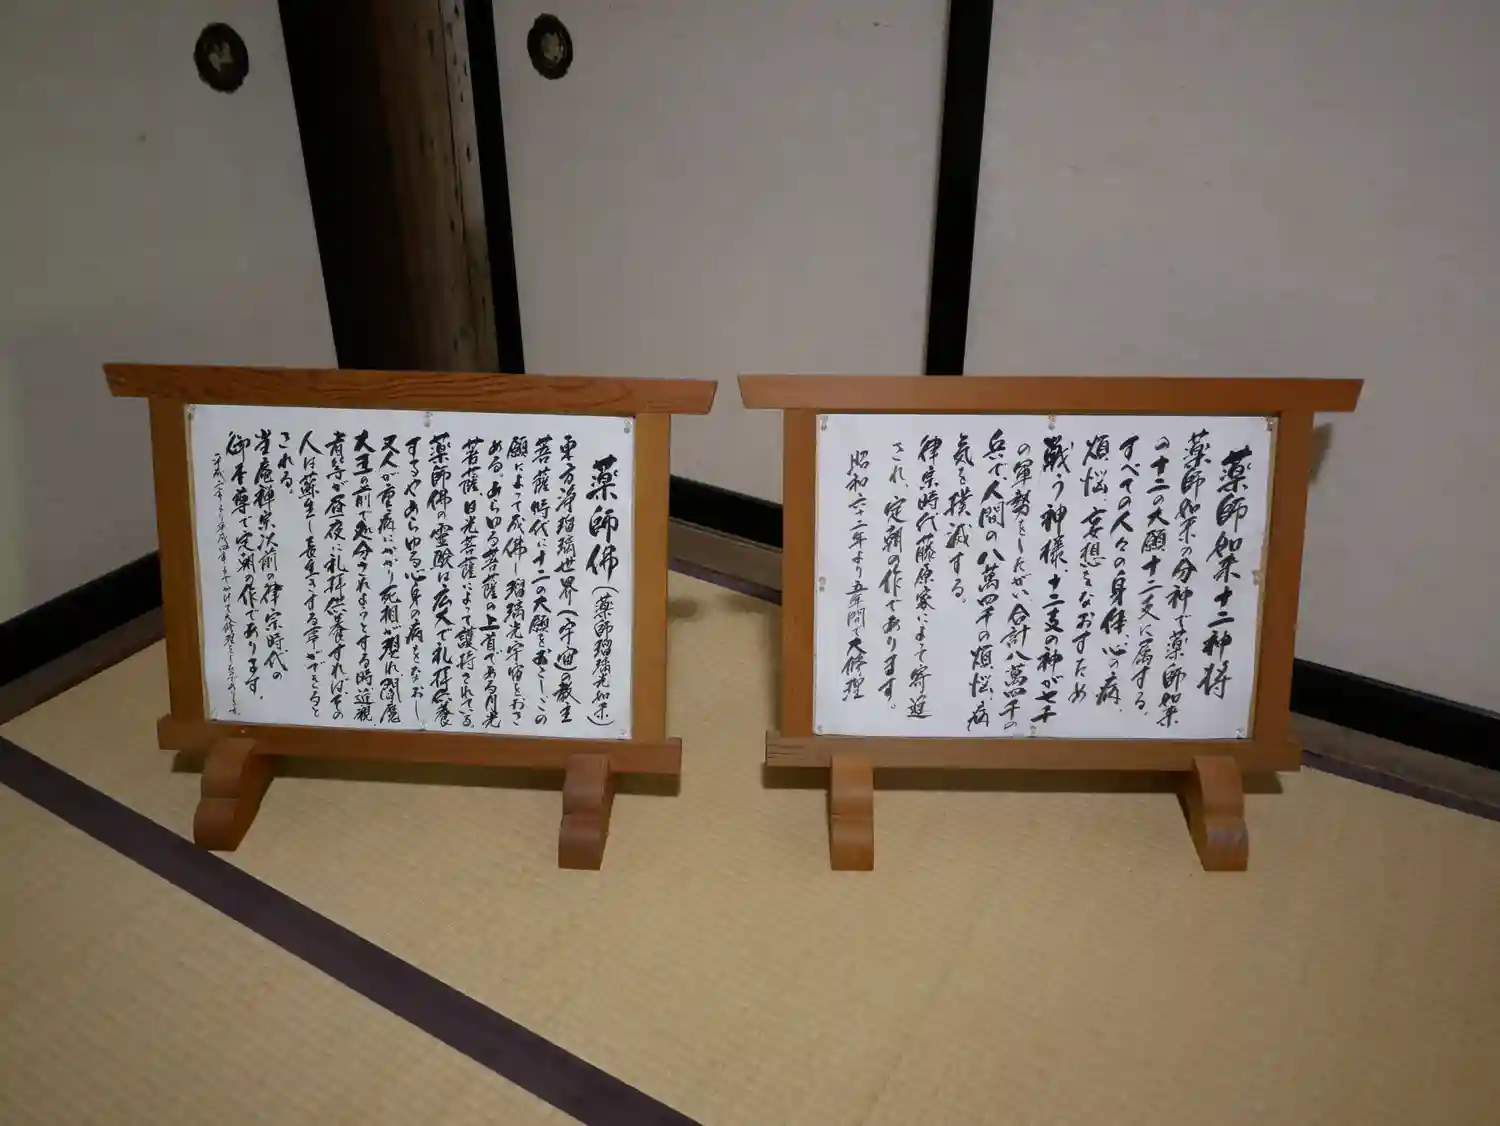 薬師佛(薬師瑠璃光如来)
東方浄瑠璃世界(宇宙)の教主
菩薩時代に十二の大願をおこし、この
願によって成佛し瑠璃光宇宙をおさ
める。あらゆる菩薩の上首である月光
菩薩日光菩薩によって護持されている。
薬師佛の霊験は広大で礼拝供養
するやあらゆる心身の病をなおし
又人が重病にかかり死相が現れ閻魔
大王の前で処分されようとする時近親
者等が昼夜に礼拝供養すればその
人は蘇生し長生きする事ができると
される。
当庵禅宗以前の律宗時代の
御本尊で定朝の作であります。
薬師如来十二神将
薬師如来の分神で薬師如来
の十二の大願十二支に属する。
すべての人々の身体、心の病、
煩悩、妄想をなおすため
戦う神様、十二支の神が七千
の軍勢をしたがい合計八萬四千の
兵で、人間の八萬四千の煩悩、病
気を撲滅する。
律宗時代藤原家によって寄進
され、定朝の作であります。
昭和六二年より五年間で大修理